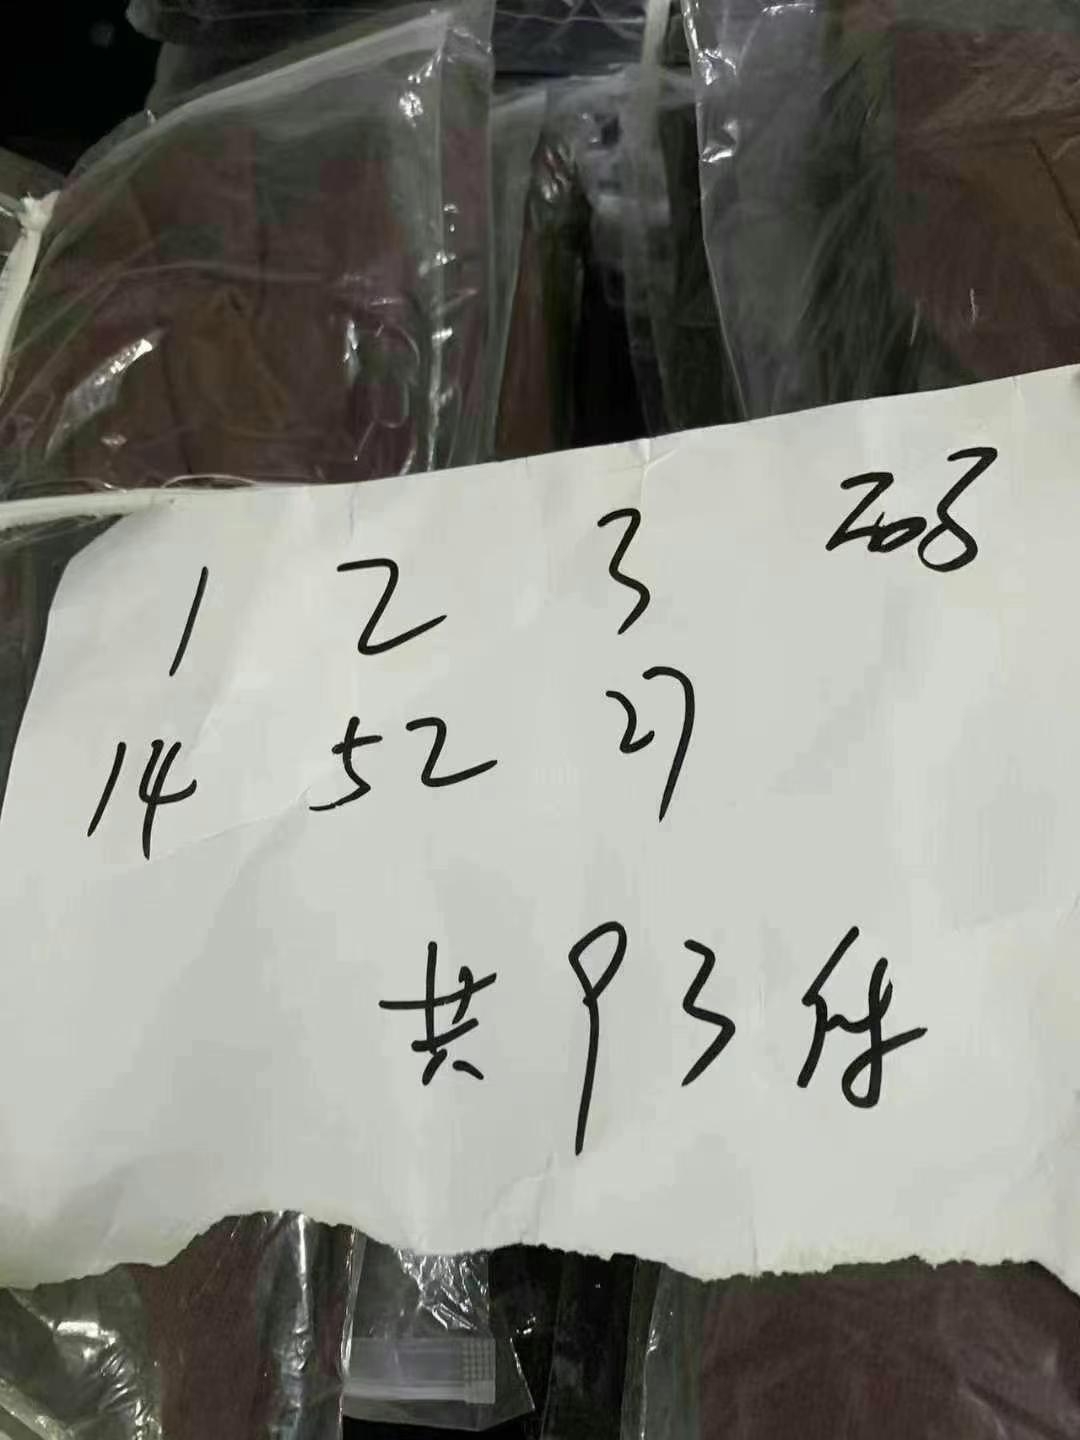 203
1 2 3
14 52 27
共93件